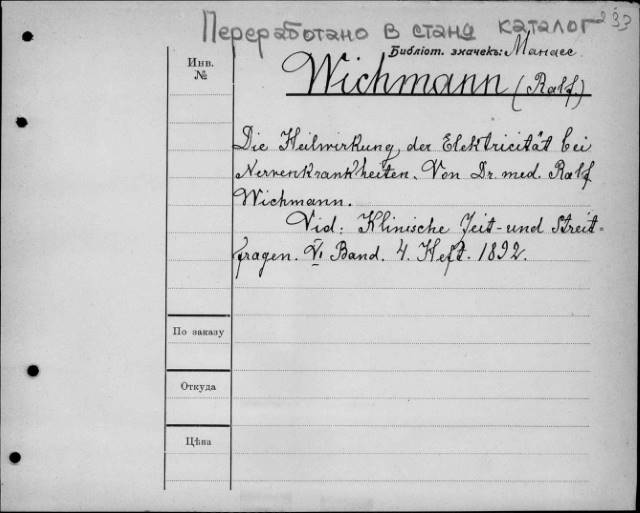 Переработано в стана каталог 233
Библіот. значекъ: Манасе.
Инв.
№
Wichmann (Ralf.)
Die Heilwirkung der Elektricität bei
Nervenkrankheiten. Von Dr. med. Ralf
Wichmann.
Vid: Klinische Zeit- und Streit-
fragen. VI Band. 4. Heft. 1892.
По заказу
Откуда
Цѣна